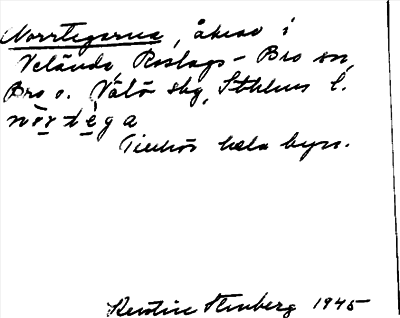 Norrtegarna, åkrar i
Velända, Roslags-Bro sn,
Bro o. Vätö skg, Sthlms l.
nòrtèga
Tillhör hela byn.
Kerstin Stenberg 1945